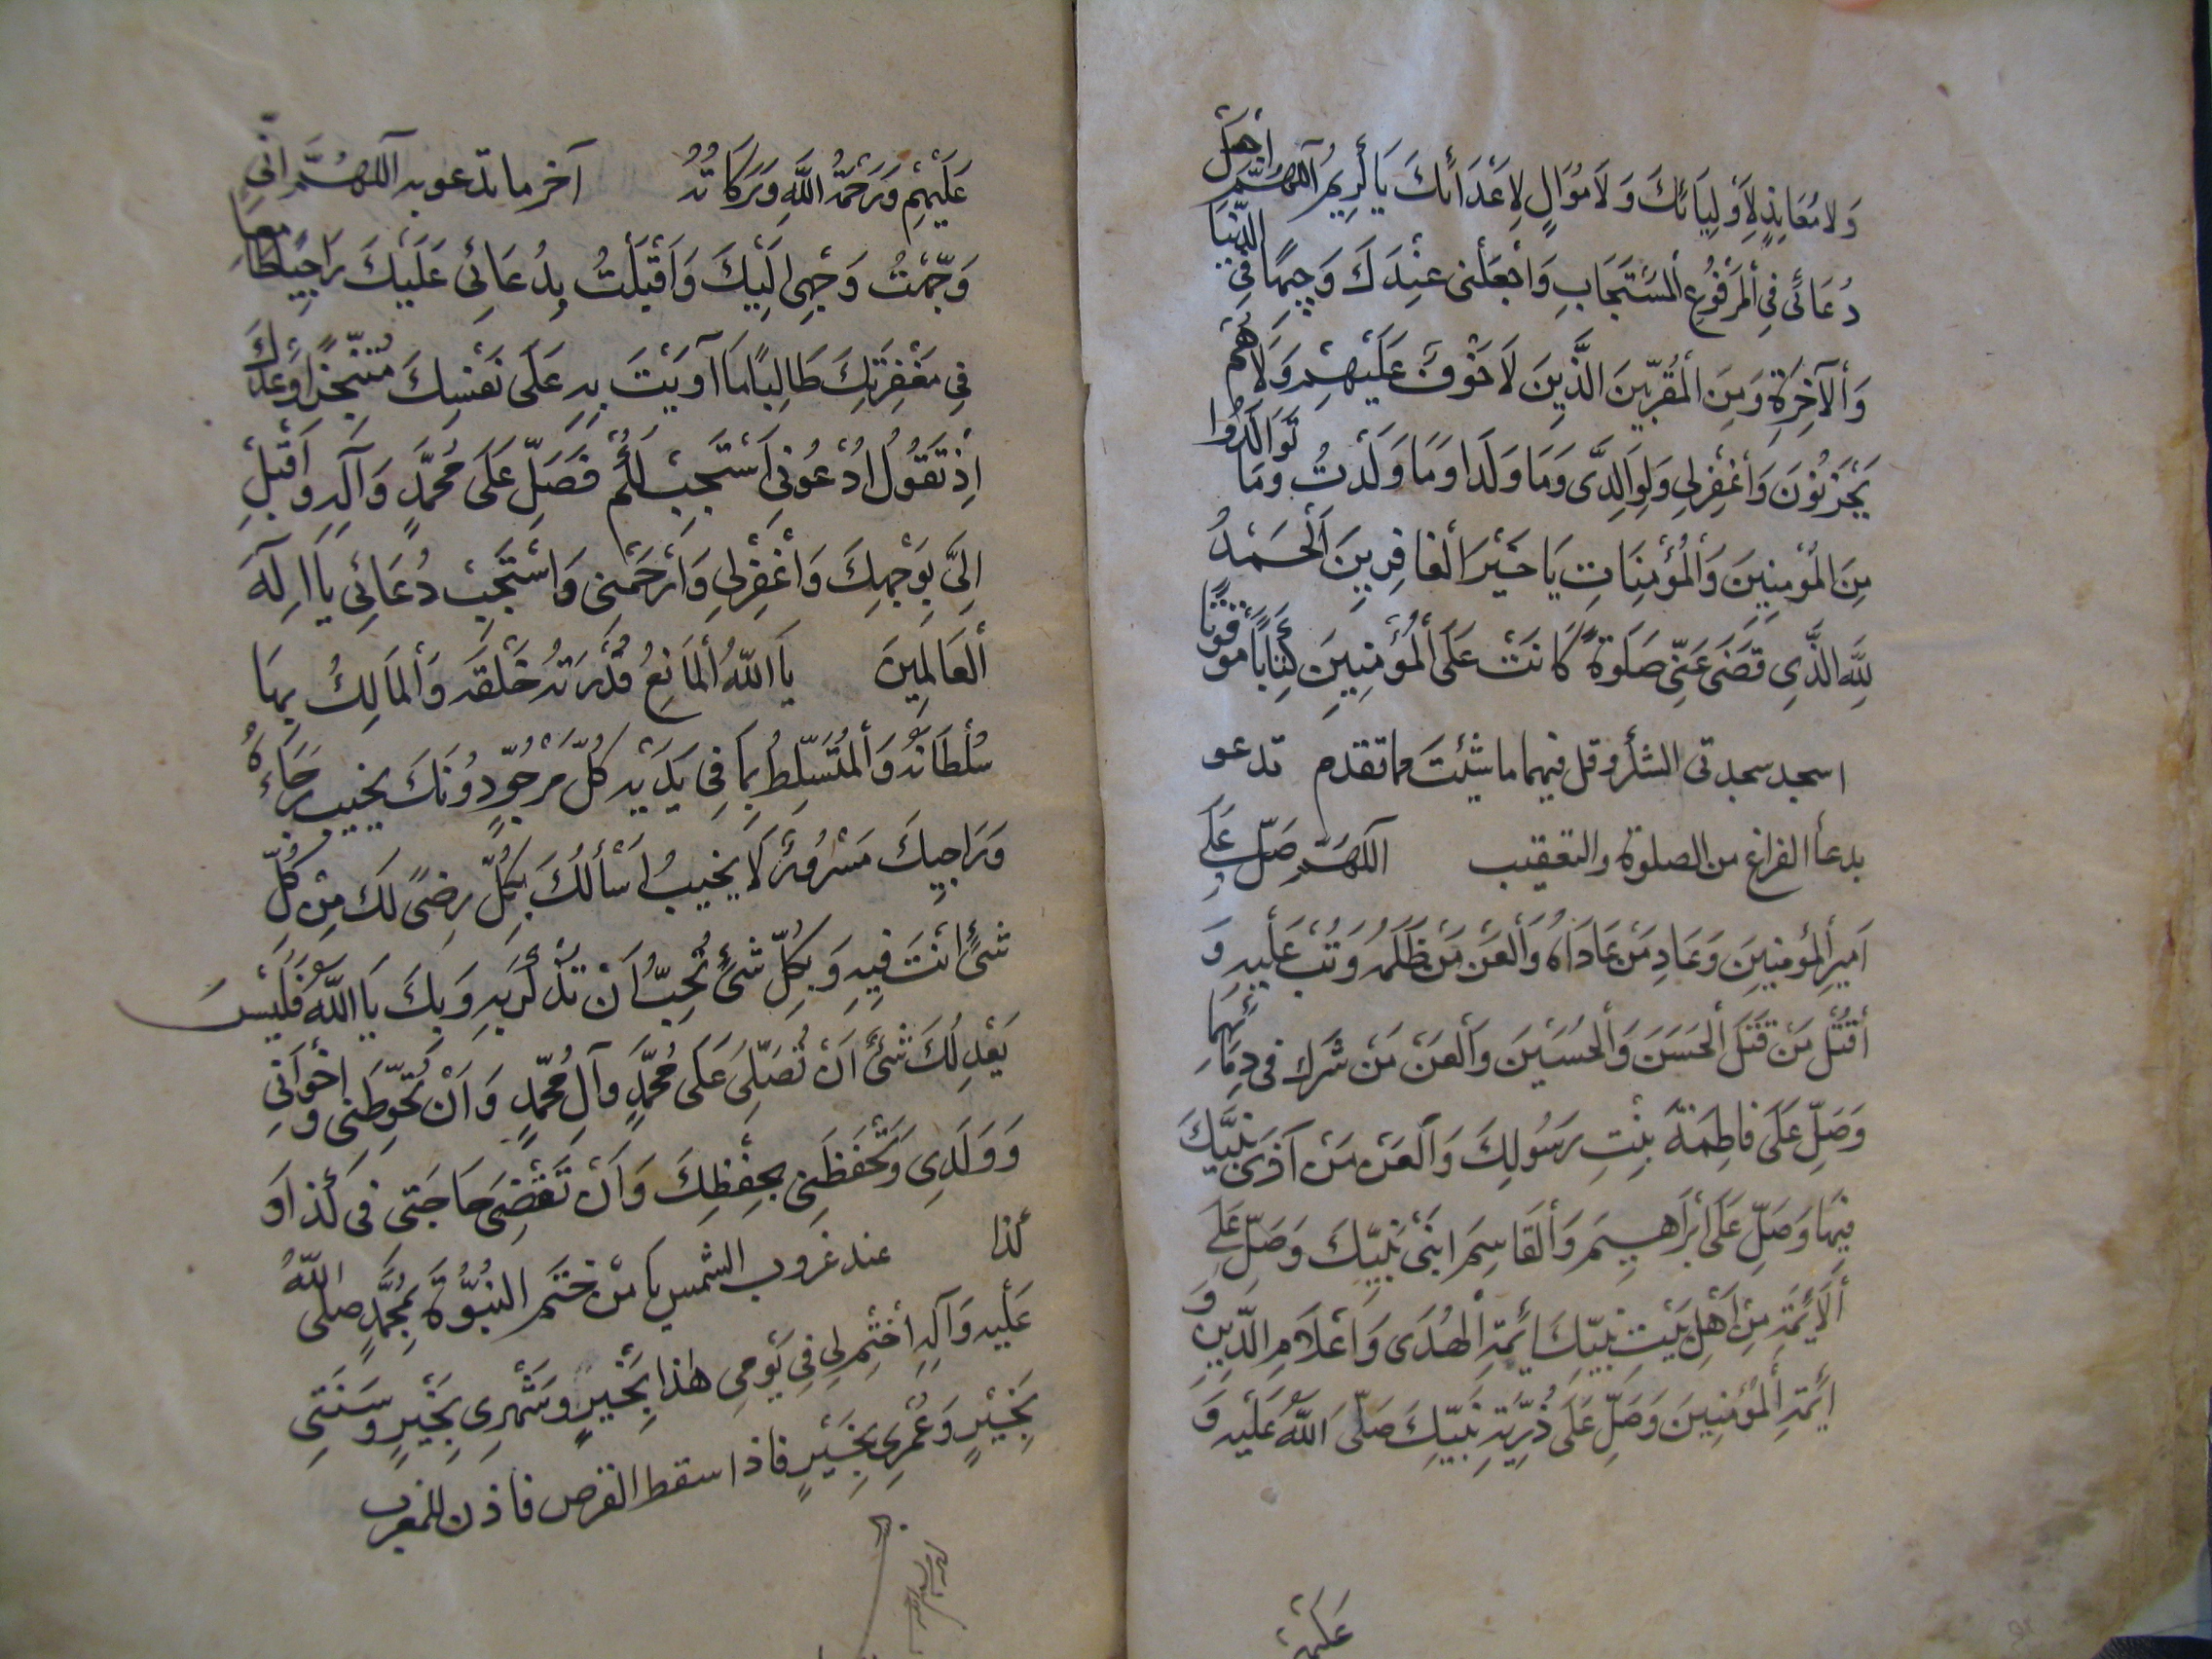 وَلَا مُعَانِدٍ لِأَوْلِيَائِكَ وَلَا مُوَالٍ لِأَعْدَائِكَ يَا كَرِيمُ اَللّهُمَّ اجْعَلْ
دُعَائِى فِي الْمَرْفُوعِ الْمُسْتَجَابِ وَاجْعَلْنى عِنْدَكَ وَجِيهًا فِي الدُّنْيَا
وَالْآخِرَةِ وَمِنَ الْمُقَرَّبِينَ الَّذِينَ لَا خَوْفٌ عَلَيْهِمْ وَلَا هُمْ
يَحْزَنُونَ وَاغْفِرْ لِي وَلِوَالِدَىَّ وَمَا وَلَدَا وَمَا وَلَدْتُ وَمَا تَوَالَدُوا
مِنَ الْمُؤْمِنِينَ وَالْمُؤْمِنَاتِ يَا خَيْرَ الْغَافِرِينَ اَلْحَمْدُ
لِلَّهِ الَّذِي قَضَى عَنِّى صَلَوةً كَانَتْ عَلَى الْمُؤْمِنِينَ كِتَابًا مَوْقُوتًا
اسجد سجدتى الشكر وقل فيهما ما شِئتَ مما تقدم تدعو
بدعا الفراغ من الصلوة والتعقيب اَللّهُمَّ صَلِّ عَلَى
اَمِيرِ الْمُؤْمِنِينَ وَعَادِ مَنْ عَادَاهُ وَالْعَنْ مَنْ ظَلَمَهُ وَثُبْ عَلَيهِ وَ
اُقْتُلْ مَنْ قَتَلَ الْحَسَنَ وَالْحُسَيْنَ وَالْعَنْ مَنْ شَرَكَ فى دِمَائِهِمَا
وَصَلِّ عَلَى فَاطِمَةَ بِنْتِ رَسُولِكَ وَالْعَنْ مَنْ آذَى نَبِيَّكَ
فِيهَا وَصَلِّ عَلَى اِبْرَاهِيمَ وَالْقَاسِمِ ابْنَىْ نَبِيِّكَ وَصَلِّ عَلَى
الْاَئِمَّةِ مِنْ اَهْلِ بَيْتِ نَبِيِّكَ اَئِمَّةِ الْهُدَى وَاَعْلَامِ الدِّينِ وَ
اَئِمَّةِ الْمُؤْمِنِينَ وَصَلِّ عَلَى ذُرِّيَّةِ نَبِيِّكَ صَلَّى اللّهُ عَلَيهِ وَ
عَلَيْهِمْ
عَلَيْهِمْ وَرَحْمَةُ اللَّهِ وَبَرَكَاتُهُ آخر ما تدعو به اَللّهُمَّ اِنِّى
وَجَّهْتُ وَجْهِى اِلَيْكَ وَاَقْبَلْتُ بِدُعَائِى عَلَيْكَ رَاجِيًا طَامِعًا
فِي مَغْفِرَتِكَ طَالِبًا مَا آوَيْتَ بِهِ عَلَى نَفْسِكَ مُتَنَجِّزًا وَعْدَكَ
اِذْ تَقُولُ ادْعُونِى اَسْتَجِبْ لَكُمْ فَصَلِّ عَلَى مُحَمَّدٍ وَآلِهِ وَاَقْبِلْ
اِلَىَّ بِوَجْهِكَ وَاغْفِرْلِي وَارْحَمْنِى وَاسْتَجِبْ دُعَائِي يَا اِلهَ
الْعَالَمِينَ يَا اَللّهُ الْمَانِعُ قُدْرَتُهُ خَلْقَهُ وَالْمَالِكُ بِهَا
سُلْطَانَهُ وَالْمُتَسَلِّطُ بِمَا فِي يَدَيْهِ كُلُّ مَرْجُوٍّ دُونَكَ يَخِيبُ رَجَاءُهُ
وَرَاجِيكَ مَسْرُورٌ لَا يَخِيبُ اَسْأَلُكَ بِكُلِّ رِضًى لَكَ مِنْ كُلِّ
شَىْءٍ اَنْتَ فِيهِ وَبِكُلِّ شَىْءٍ تُحِبُّ اَنْ تُذْكَرَ بِهِ وَبِكَ يَا اَللّهُ فَلَيْسَ
يَعْدِلُكَ شَىْءٌ اَنْ تُصَلِّىَ عَلَى مُحَمَّدٍ وَآلِ مُحَمَّدٍ وَاَنْ تُحَوِّطَنى وَ اِخْوَانِى
وَوَلَدِى وَتَحْفَظَنِى بِحِفْظِكَ وَاَنْ تَقْضِىَ حَاجَتِى فى كَذَا وَ
كذا عند غروب الشمس يَا مَنْ خَتَمَ النُّبُوَّةَ بِمُحَمَّدٍ صلى اللّهُ
عَلَيهِ وَآلِهِ اخْتِمْ لِي فِي يَوْمِي هٰذَا بِخَيْرٍ وَشَهْرِى بِخَيْرٍ وَسَنَتِى
بِخَيْرٍ وَعُمْرِى بِخَيْرٍ فاذا سقط القرص فاذن للمغرب